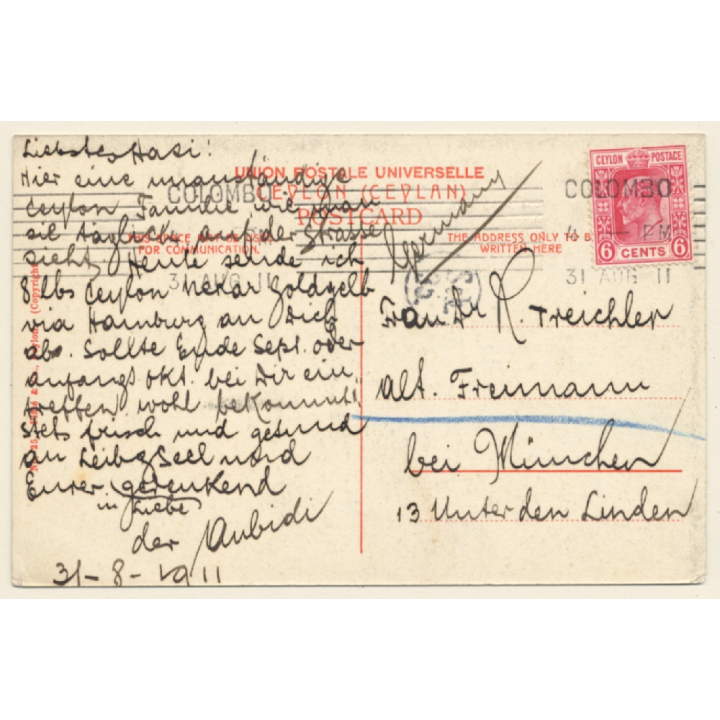 Liebstes Hasi!
Hier eine
Ceylon Familie wie man
sie täglich auf der Strasse
sieht. Heute sende ich
8 lbs Ceylon Goldgelb
via Hamburg an Dich
ab. Sollte Ende Sept. oder
anfangs Okt. bei Dir ein
treffen, wohl
stets frisch und gesund
an Leib & Seel und
Eurer gedenkend
in Liebe
der
31-8-1911
UNION POSTALE UNIVERSELLE
CEYLON (CEYLAN)
POSTCARD
FOR COMMUNICATION.
THE ADDRESS ONLY TO B
WRITTEN HERE
Germany
COLOMBO
31 AUG 11
CEYLON POSTAGE
6 CENTS 6
COLOMBO
PM
31 AUG 11
Frau Dr R. Treichler
alt. Freimann
bei München
13 Unter den Linden